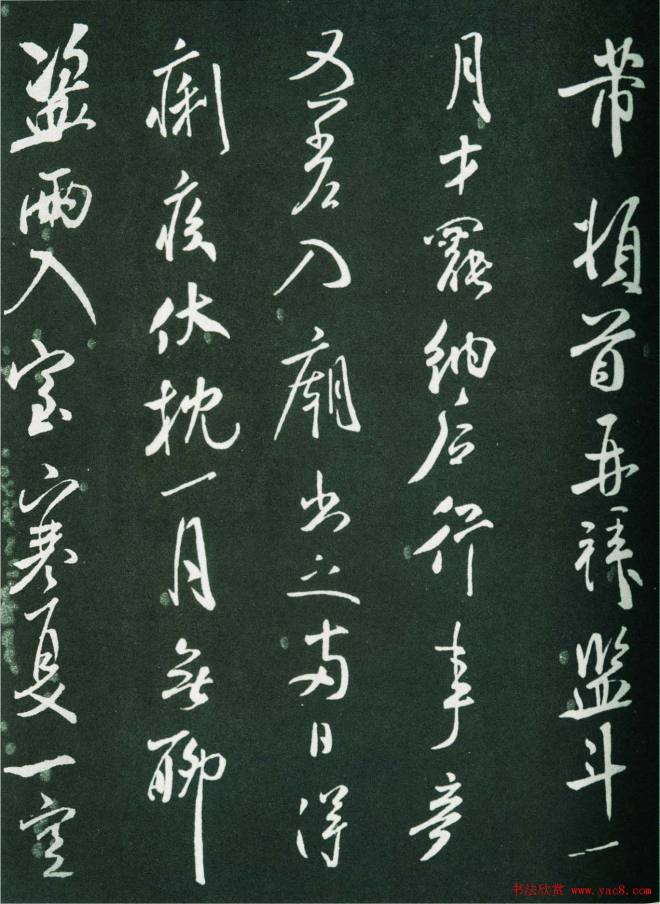 芾頓首再拜監斗一
月才罷納后行事
又差入廟出之两日得
痢疾伏枕一月無聊
盜兩入室寒夏一空
书法欣赏 www.yac8.com